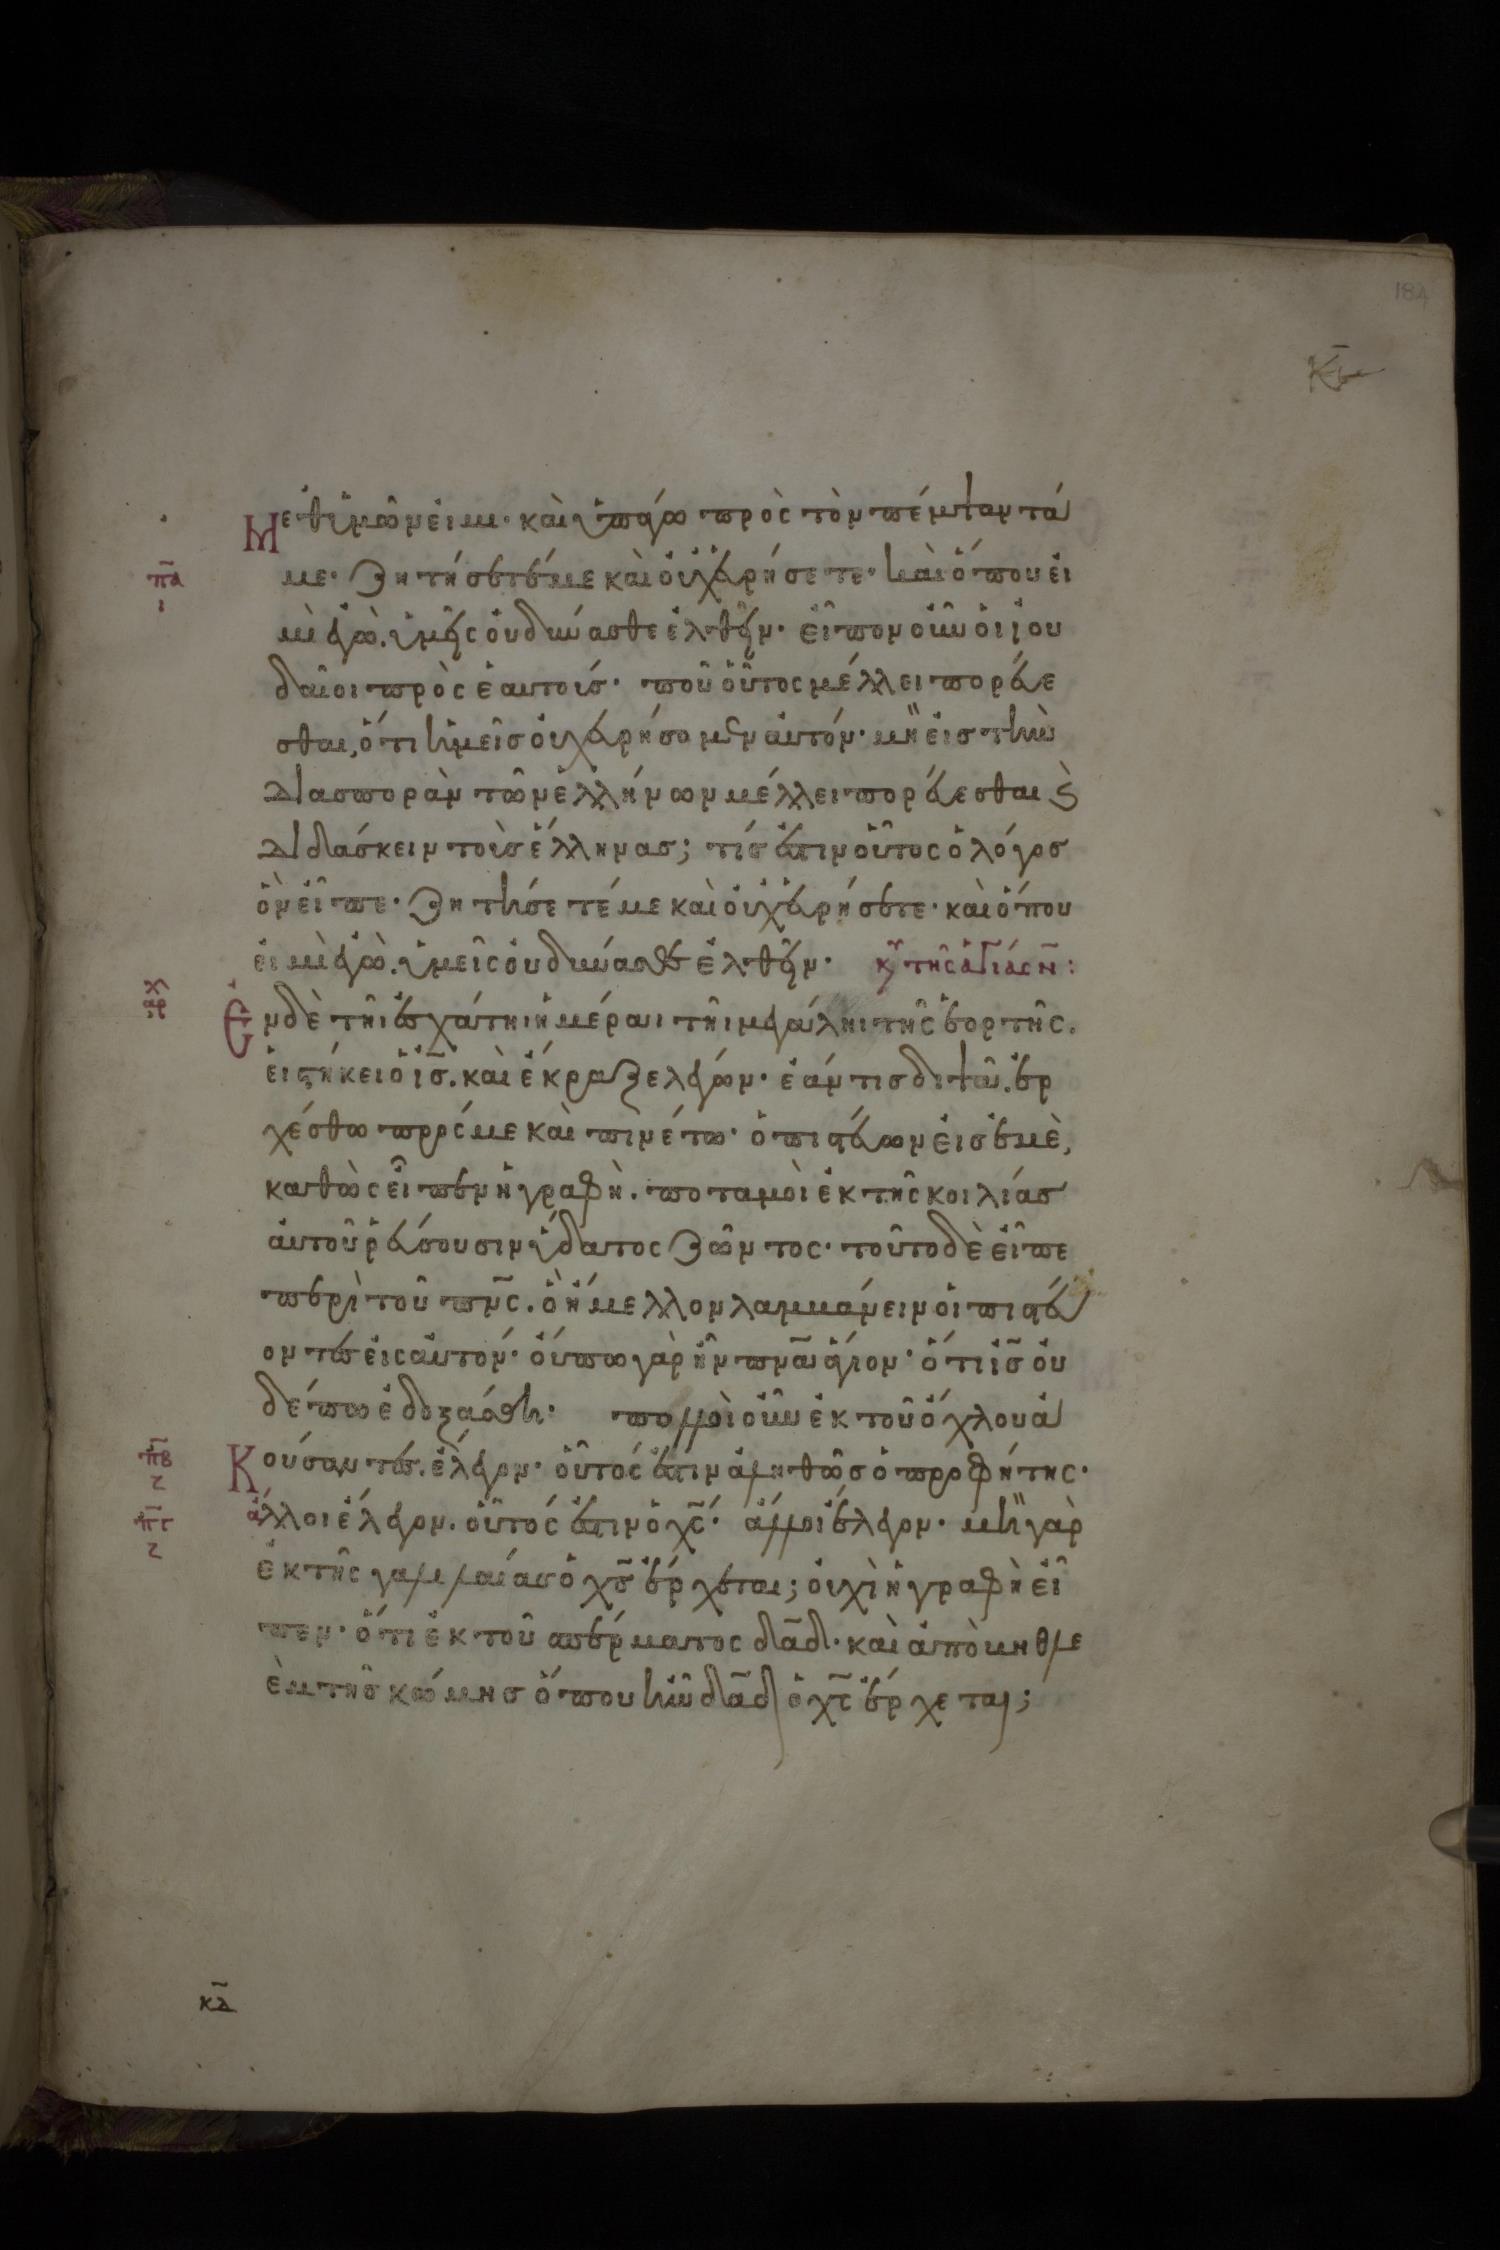 184
κβ
Μεθ' ὑμῶν εἰμι· καὶ ὑπάγω πρὸς τὸν πέμψαντά
πα
ι
με· Ζητήσετέ με καὶ οὐχ εὑρήσετε· καὶ ὅπου εἰ
μὶ ἐγὼ. ὑμεῖς οὐ δύνασθε ἐλθεῖν· εἶπον οὖν οἱ ἰου
δαῖοι πρὸς ἑαυτούς· ποῦ οὗτος μέλλει πορεύε
σθαι, ὅτι ἡμεῖς οὐχ εὑρήσομεν αὐτόν· μὴ εἰς τὴν
διασπορὰν τῶν ἑλλήνων μέλλει πορεύεσθαι ϗ
διδάσκειν τοὺς ἕλληνας; τίς ἐστιν οὗτος ὁ λόγος
ὃν εἶπε· Ζητήσετέ με καὶ οὐχ εὑρήσετε· καὶ ὅπου
εἰμὶ ἐγὼ. ὑμεῖς οὐ δύνασθε ἐλθεῖν·
Ἐν δὲ τῆι ἐσχάτηι ἡμέραι τῆι μεγάληι τῆς ἑορτῆς.
εἱστήκει ὁ ις. καὶ ἔκραζε λέγων· ἐάν τις διψᾶ. ἐρ
χέσθω πρός με καὶ πινέτω· ὁ πιστεύων εἰς ἐμὲ,
καθὼς εἶπεν ἡ γραφὴ. ποταμοὶ ἐκ τῆς κοιλίας
αὐτοῦ ῥεύσουσιν ὕδατος ζῶντος· τοῦτο δὲ εἶπε
περὶ τοῦ πνς. ὃ ἤμελλον λαμβάνειν οἱ πιστεύ
οντες εἰς αὐτόν· οὔπω γὰρ ἦν πνα ἅγιον· ὅτι ις οὐ
δέπω ἐδοξάσθη· πολλοὶ οὖν ἐκ τοῦ ὄχλου ἀ
πβ
ζ
Κούσαντες. ἔλεγον· οὗτός ἐστιν ἀληθῶς ὁ προφήτης·
πγ
ζ
ἄλλοι ἔλεγον. οὗτός ἐστιν ὁ χς· ἄλλοι ἔλεγον· μὴ γὰρ
ἐκ τῆς γαλιλαίας ὁ χς ἔρχεται; οὐχὶ ἡ γραφὴ εἶ
πεν· ὅτι ἐκ τοῦ σπέρματος δαδ· καὶ ἀπὸ βηθλε
ὲμ τῆς κώμης ὅπου ἦν δαδ ὁ χς ἔρχεται;
κα